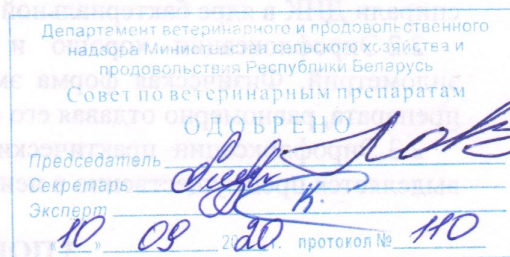 Департамент ветеринарного и продовольственного
надзора Министерства сельского хозяйства и
продовольствия Республики Беларусь
Совет по ветеринарным препаратам
ОДОБРЕНО
Председатель
Секретарь
Эксперт
"10" 09 2020 г. протокол № 110